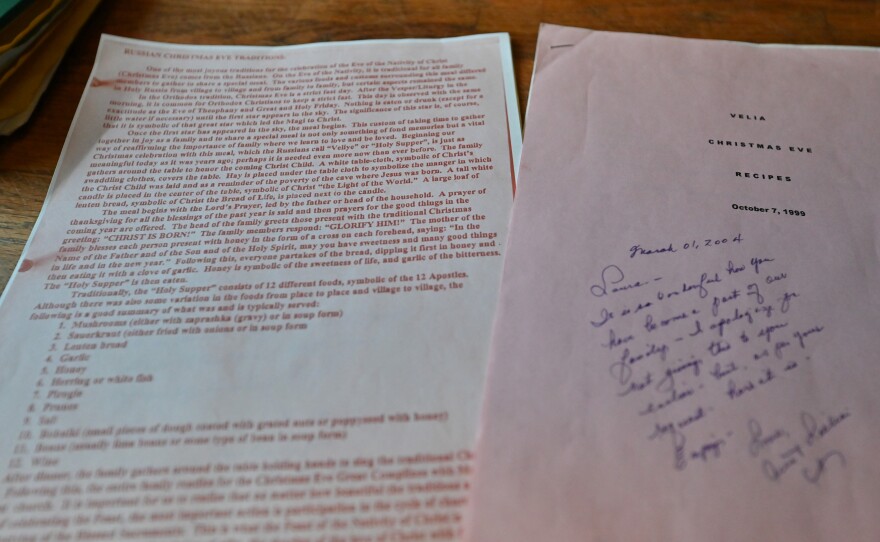 RUSSIAN CHRISTMAS EVE TRADITIONS:
One of the most joyous traditions for the celebration of the Eve of the Nativity of Christ
(Christmas Eve) comes from the Russians. On the Eve of the Nativity, it is traditional for all family
members to gather to share a special meal. The various foods and customs surrounding this meal differed
in Holy Russia from village to village and from family to family, but certain aspects remained the same.
In the Orthodox tradition, Christmas Eve is a strict fast day. After the Vesper/Liturgy in the
morning, it is common for Orthodox Christians to keep a strict fast. This day is observed with the same
exactitude as the Eve of Theophany and Great and Holy Friday. Nothing is eaten or drunk (except for a
little water if necessary) until the first star appears in the sky. The significance of this star is, of course,
that it is symbolic of that great star which led the Magi to Christ.
Once the first star has appeared in the sky, the meal begins. This custom of taking time to gather
together in joy as a family and to share a special meal is not only something of fond memories but a vital
way of reaffirming the importance of family where we learn to love and be loved. Beginning our
Christmas celebration with this meal, which the Russians call "Veliye" or "Holy Supper", is just as
meaningful today as it was years ago; perhaps it is needed even more now than ever before. The family
gathers around the table to honor the coming Christ Child. A white table-cloth, symbolic of Christ's
swaddling clothes, covers the table. Hay is placed under the table cloth to symbolize the manger in which
the Christ Child was laid and as a reminder of the poverty of the cave where Jesus was born. A tall white
candle is placed in the center of the table, symbolic of Christ "the Light of the World." A large loaf of
lenten bread, symbolic of Christ the Bread of Life, is placed next to the candle.
The meal begins with the Lord's Prayer, led by the father or head of the household. A prayer of
thanksgiving for all the blessings of the past year is said and then prayers for the good things in the
coming year are offered. The head of the family greets those present with the traditional Christmas
greeting: "CHRIST IS BORN!" The family members respond: "GLORIFY HIM!" The mother of the
family blesses each person present with honey in the form of a cross on each forehead, saying: "In the
Name of the Father and of the Son and of the Holy Spirit, may you have sweetness and many good things
in life and in the new year." Following this, everyone partakes of the bread, dipping it first in honey and
then eating it with a clove of garlic. Honey is symbolic of the sweetness of life, and garlic of the bitterness.
The "Holy Supper" is then eaten.
Traditionally, the "Holy Supper" consists of 12 different foods, symbolic of the 12 Apostles.
Although there was also some variation in the foods from place to place and village to village, the
following is a good summary of what was and is typically served:
1. Mushrooms (either with zaprashka (gravy) or in soup form)
2. Sauerkraut (either fried with onions or in soup form)
3. Lenten bread
4. Garlic
5. Honey
6. Herring or white fish
7. Pirogie
8. Prunes
9. Salt
10. Bobalki (small pieces of dough coated with grated nuts or poppyseed with honey)
11. Beans (usually lima beans or some type of bean in soup form)
12. Wine
After dinner, the family gathers around the table holding hands to sing the traditional
Following this, the entire family readies for the Christmas Eve Great Compline with
church. It is important for us to realize that no matter how beautiful the traditions
of celebrating the Feast, the most important action is participation in the cycle of
of the Blessed Sacraments. This is what the Feast of the Nativity of Christ is
VELIA
CHRISTMAS EVE
RECIPES
October 7, 1999
March 01, 2004
Laura -
It is so wonderful how you
have become a part of our
family - I apologize for
not giving this to you
earlier - but as per your
request - here it is.
Love,